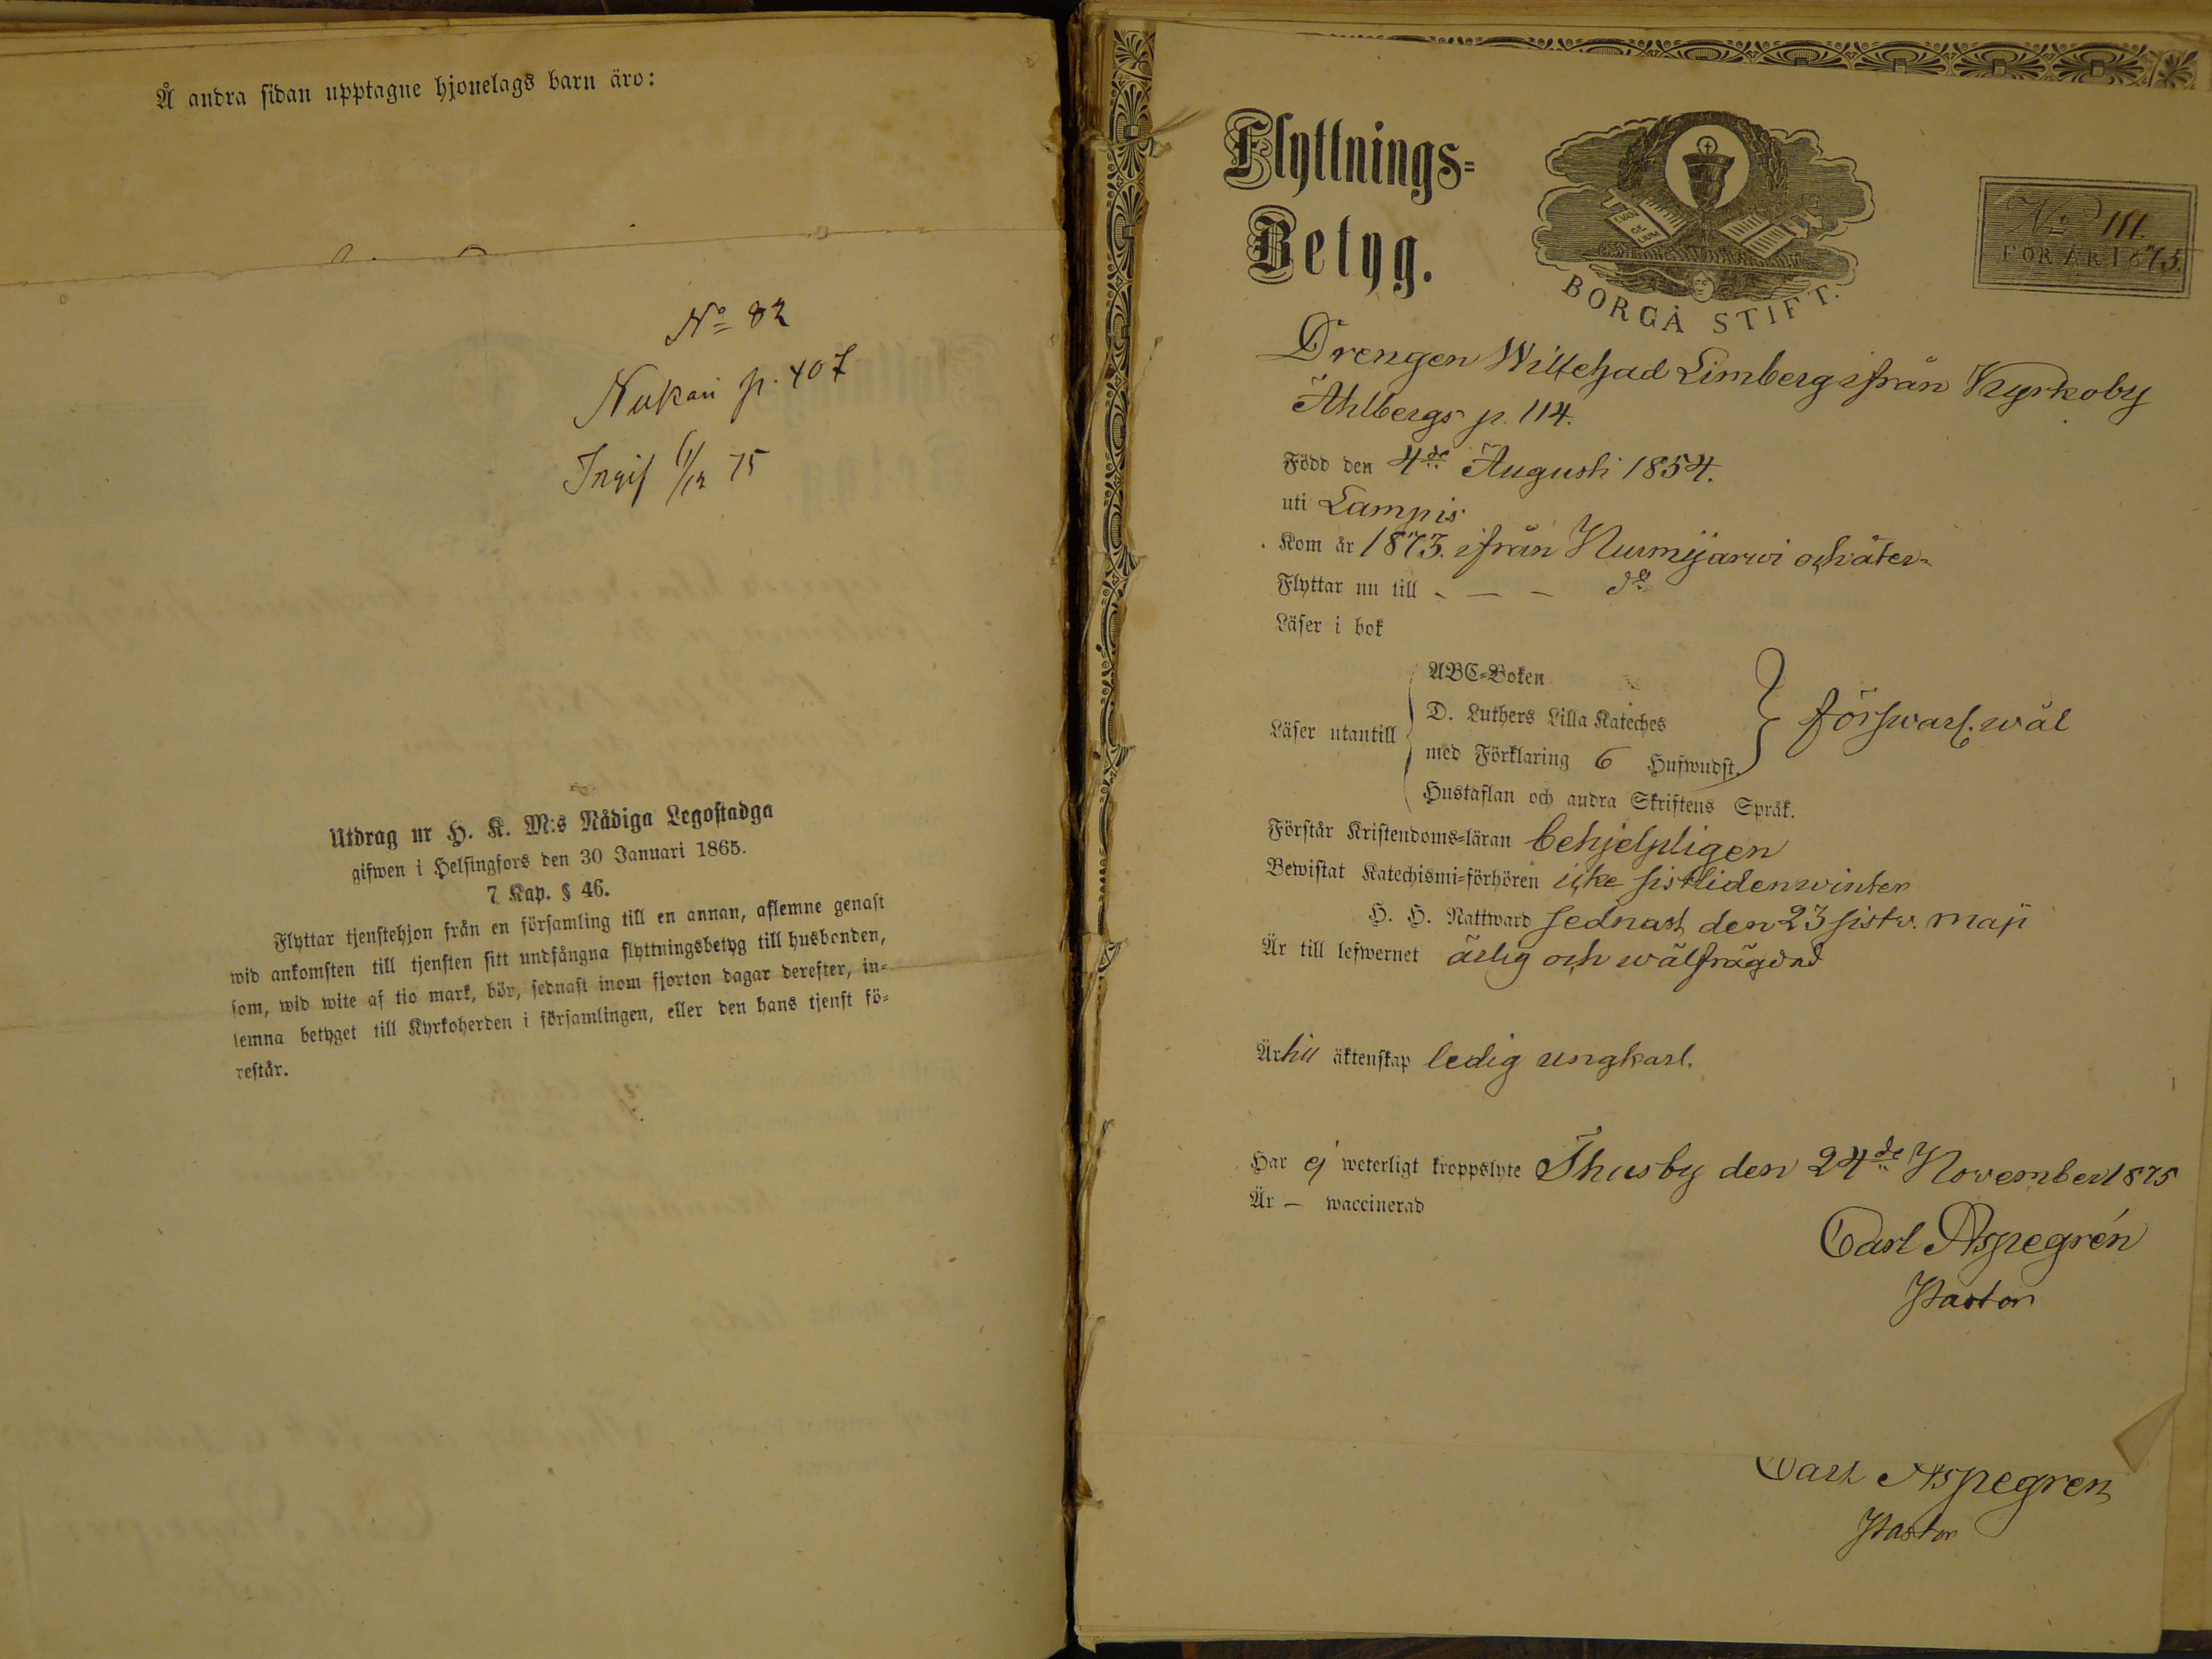 Å andra sidan upptagne hjonelags barn äro:
No 82
Nukari p. 407
Ingif 6/12 75
Utdrag ur H. K. M:s Nådiga Legostadga
gifwen i Helsingfors den 30 Januari 1865.
7 Kap. § 46.
Flyttar tjenstehjon från en församling till en annan, aflemne genast
wid ankomsten till tjensten sitt undfångna flyttningsbetyg till husbonden,
som, wid wite af tio mark, bör, sednast inom fjorton dagar derefter, in-
lemna betyget till Kyrkoherden i församlingen, eller den hans tjenst fö-
restår.
Flyttnings-
Betyg.
EVAN
GE
LIUM
BORGÅ STIFT.
No 111.
FÖR ÅR 1875.
Drengen Willehad Limberg ifrån Kyrkoby
Åhlbergs p. 114.
Född den 4de Augusti 1854.
uti Lampis
Kom år 1873. ifrån Nurmijärwi och åter-
Flyttar nu till - - - do
Läser i bok
ABC-Boken
Läser utantill D. Luthers Lilla Kateches
med Förklaring 6 Hufwudst. } förswarl. wäl
Hustaflan och andra Skriftens Språk.
Förstår Kristendoms-läran behjelpligen
Bewistat Katechismi-förhören icke sistlidenwinter
H. H. Nattward sednast den 23 sistw. maji
Är till lefwernet ärlig och wälfrägdad
Är till äktenskap ledig ungkarl.
Har ej weterligt kroppslyte Thusby den 24de November 1875
Är — waccinerad
Carl Aspegrén
Pastor
Carl Aspegren
Pastor